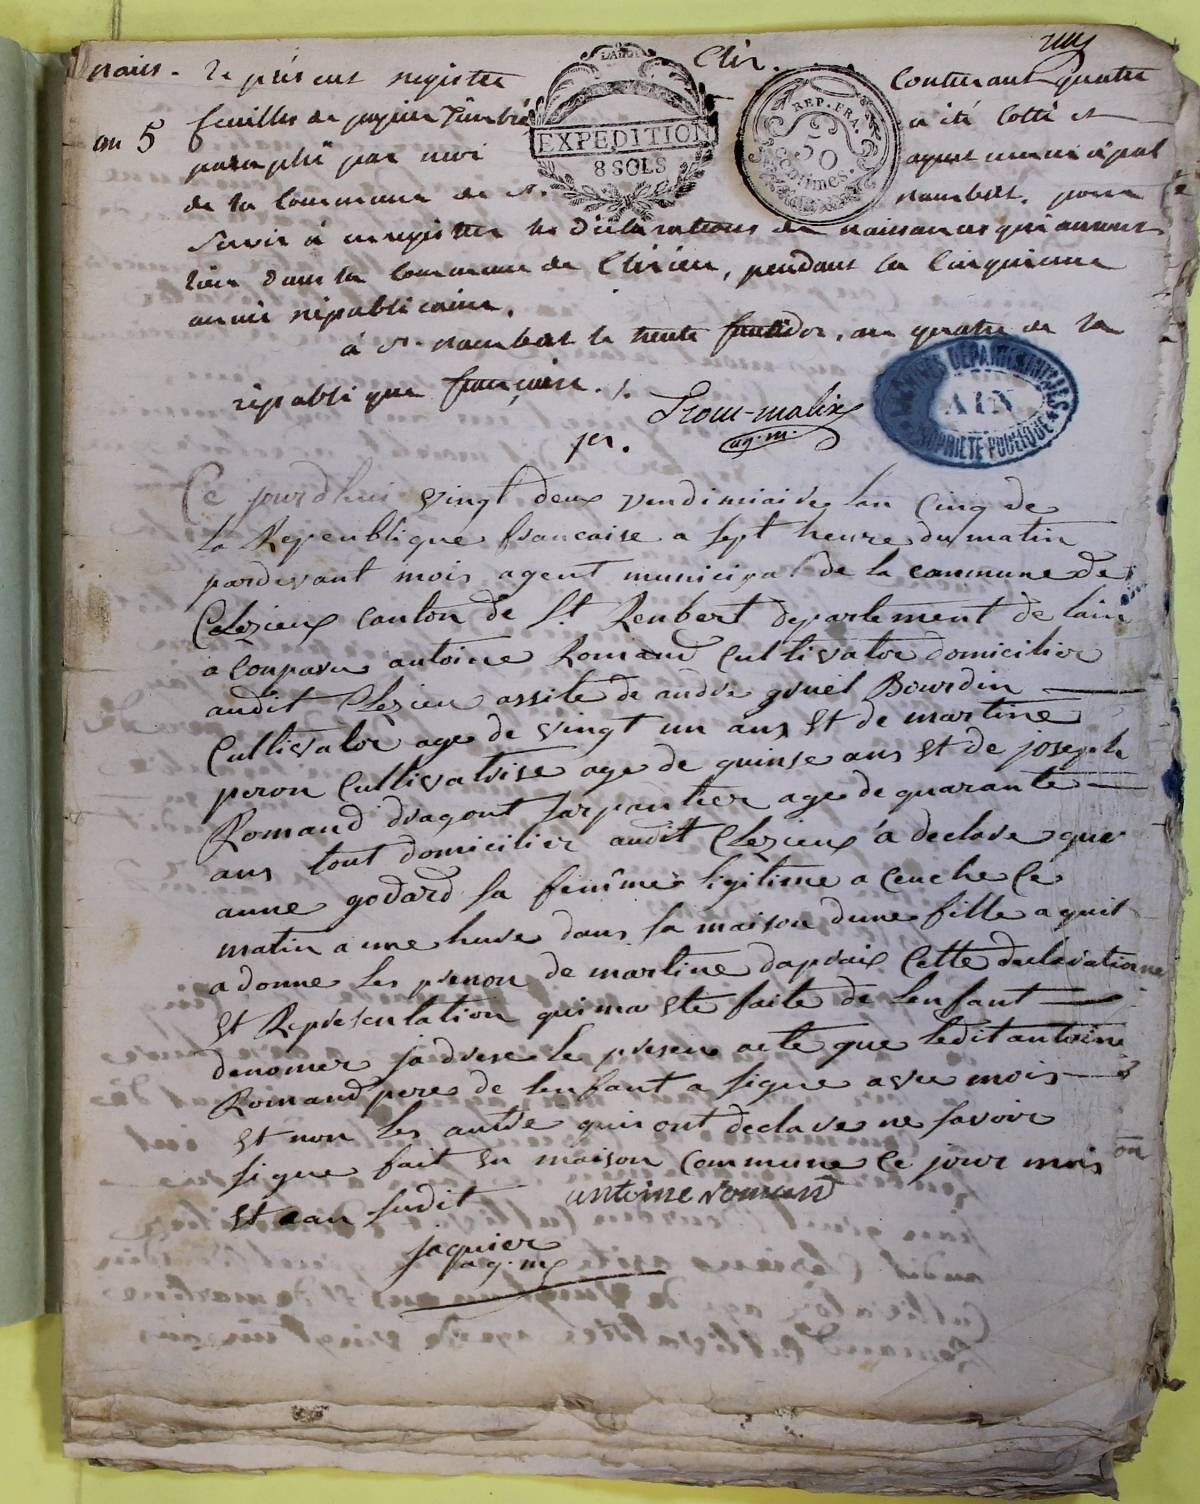 nais.
an 5
Cléz.
Le présent registre contenant quatre
feuilles de papier timbré a été cotté et
paraphé par moi agent municipal
de la commune de St. rambert. pour
servir à enregistrer les déclarations de naissances qui auront
lieu dans la commune de Clézieu, pendant la cinquieme
année républicaine.
à St. rambert le trente fructidor, an quatre de la
république françoise. /.
Trocu-malix
ag. m.
per.
L'AIN
EXPEDITION
8 SOLS
REP. FRA.
50
centimes.
ARCHIVES DÉPARTEMENTALES
AIN
PROPRIÉTÉ PUBLIQUE
Ce jourdhui vingt deux vendimiaire lan cinq de
la Republique francaise a sept heure du matin
pardevant mois agent municipal de la commune de
Clezieux canton de St. Renbert departement de lain
a conparu antoine Romand cultivator domicilier
audit Clezieu assite de andre gruel Bourdin
Cultivator age de vingt un ans Et de martine
peron cultivatrise age de quinse ans Et de joseph
Romand dragont sarpantier age de quarante
ans tout domicilier audit Clezieux a declare que
anne godard sa femme ligitime a couche ce
matin a une hure dans sa maison dune fille a quil
a donne les prenon de martine dapraix cette declaratione
Et Representation qui ma ete faite de lenfant
denomer jadrese le presen acte que ledit antoine
Romand pere de lenfant a signe avec mois
Et non les autre qui ont declare ne savoir
signe fait En maison commune ce jour mois on
Et ean sudit antoine romand
jaquier
ag. m